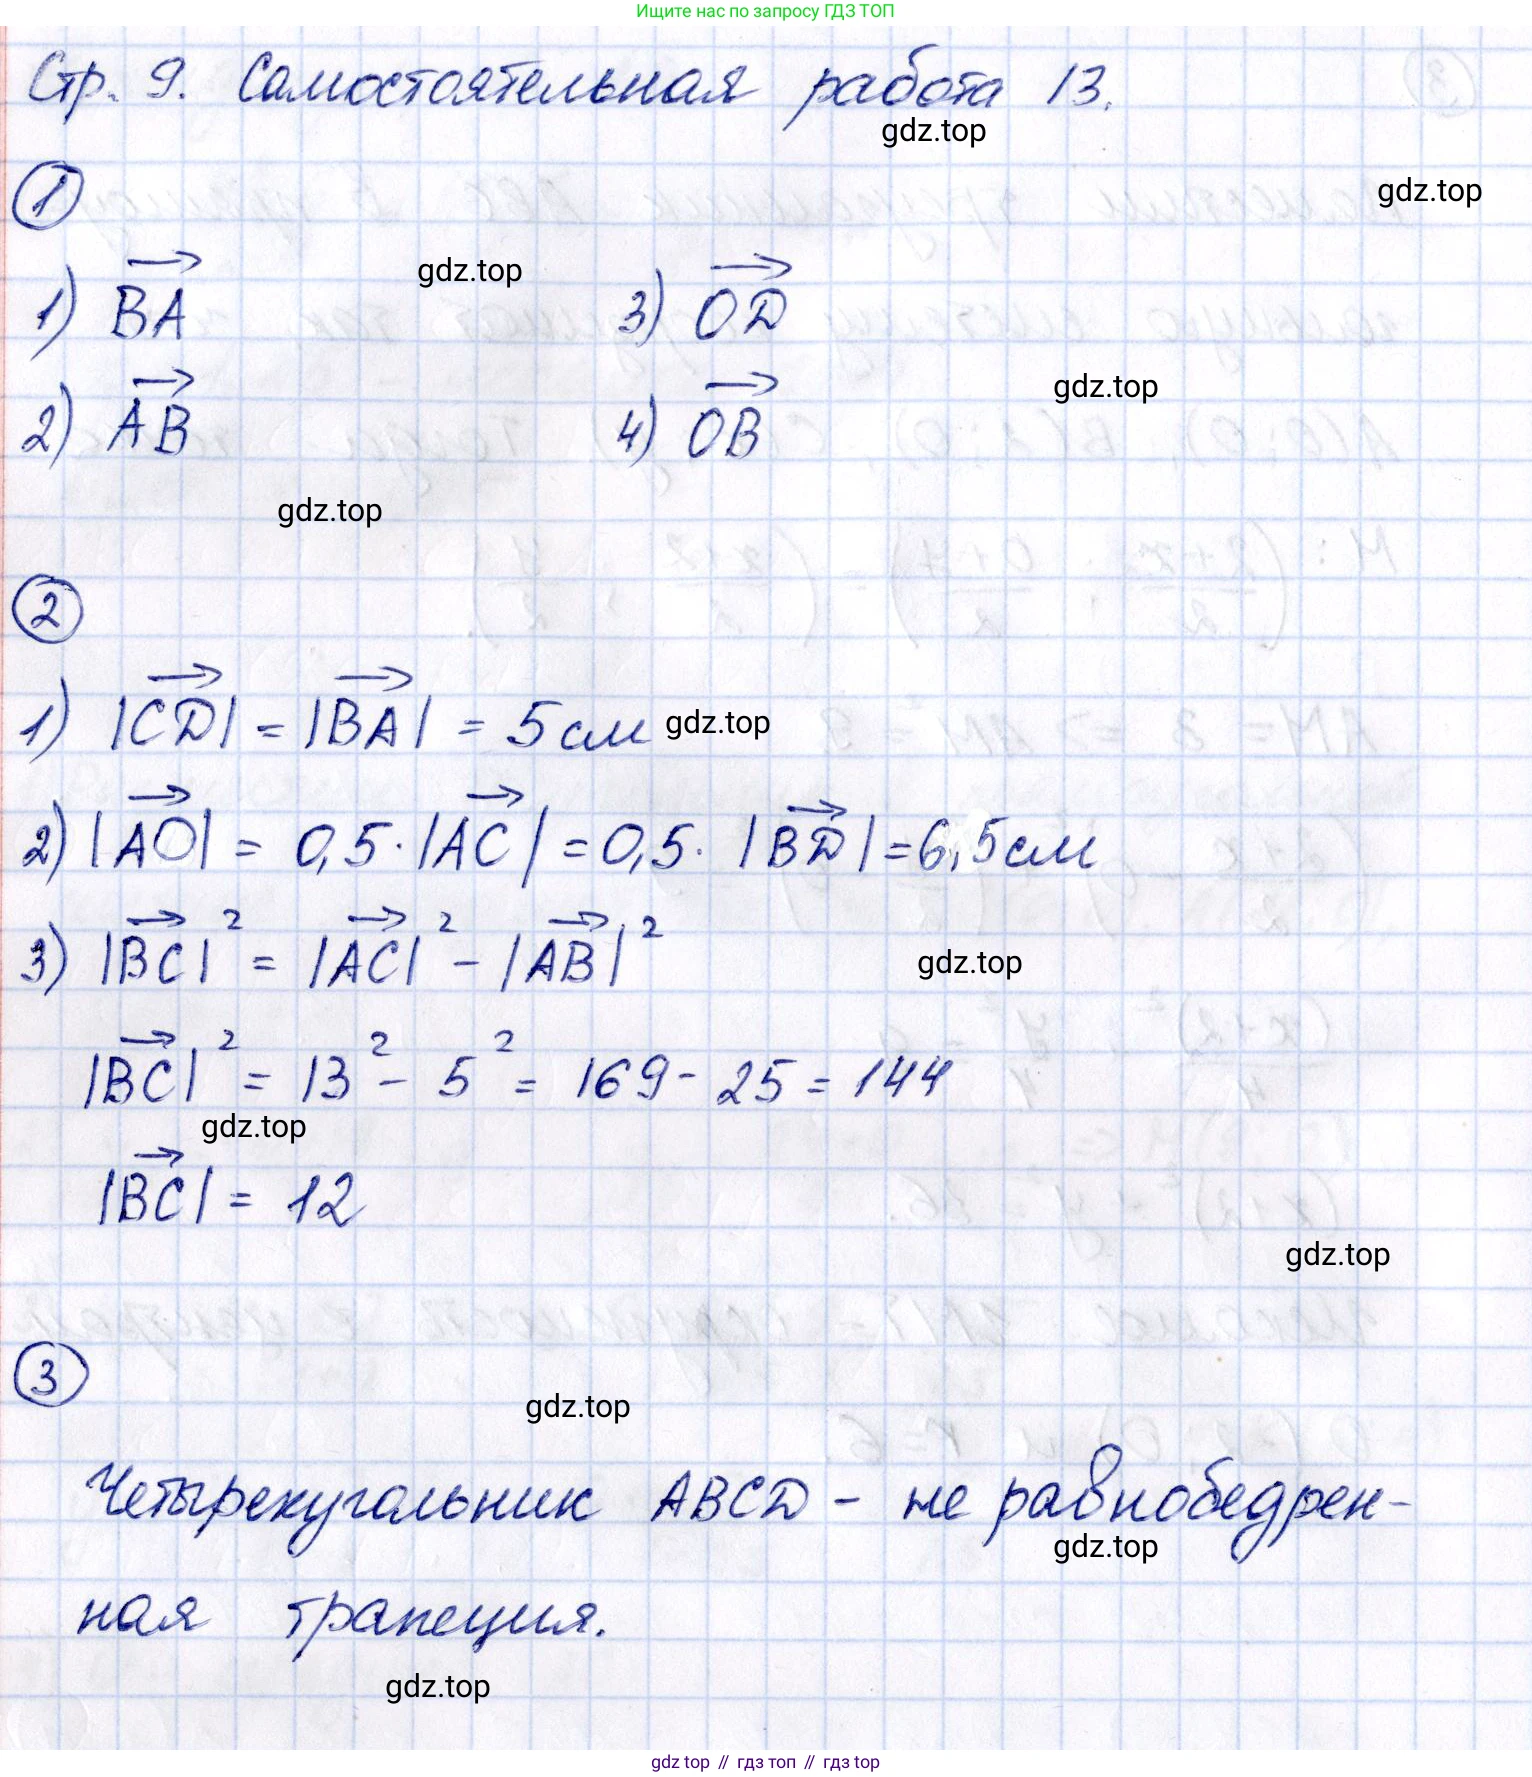 Ищите нас по запросу ГДЗ ТОП
Стр. 9. Самостоятельная работа 13.
gdz.top
gdz.top
1
1) BA 3) OD
gdz.top
2) AB 4) OB
gdz.top
gdz.top
2
1) |CD| = |BA| = 5 см
gdz.top
2) |AO| = 0,5 · |AC| = 0,5 · |BD| = 6,5 см
3) |BC|² = |AC|² - |AB|²
gdz.top
|BC|² = 13² - 5² = 169 - 25 = 144
gdz.top
|BC| = 12
gdz.top
3
gdz.top
Четырехугольник ABCD - не равнобедрен-
gdz.top
ная трапеция.
gdz.top
gdz top // гдз топ // гдз top